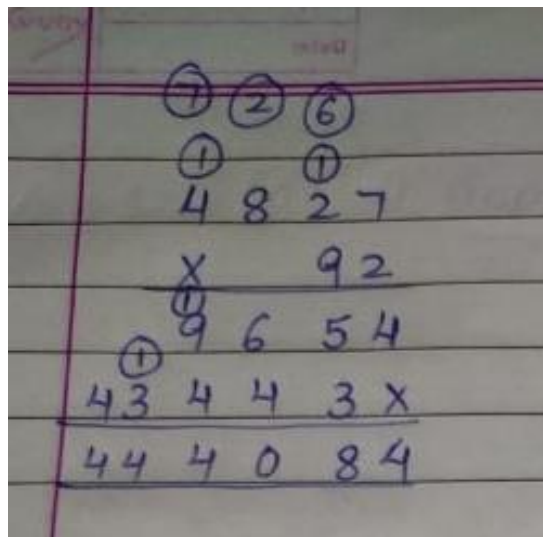 7 2 6
1 1
4 8 2 7
X 9 2
1
9 6 5 4
1
4 3 4 4 3 X
4 4 4 0 8 4